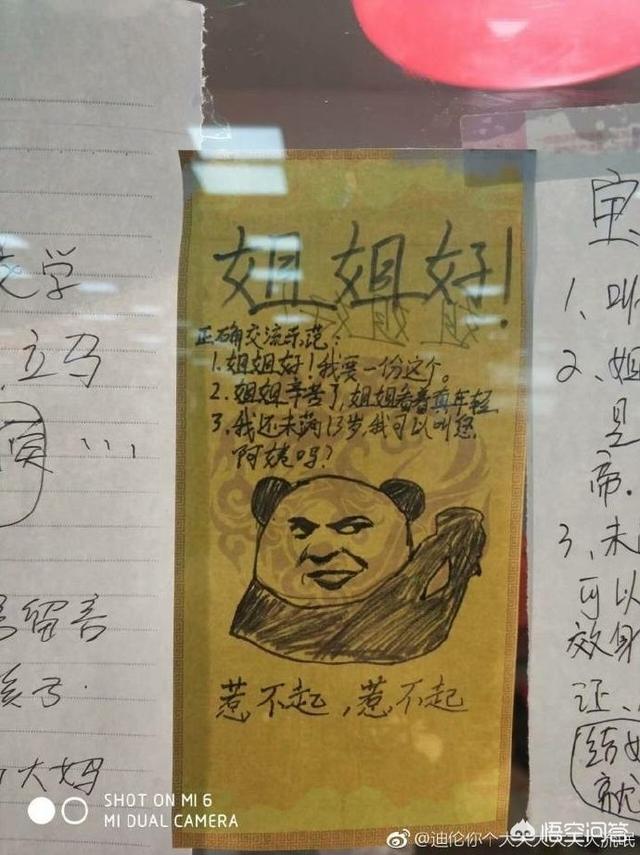 姐姐好!
正确交流示范:
1.姐姐好!我要一份这个。
2.姐姐辛苦了,姐姐看着真年轻
3.我还未满13岁,我可以叫您
阿姨吗?
惹不起,惹不起
学
立马
留言
大妈
1、叫
2、姐
是
帝.
3、未
可以
效身
证、
SHOT ON MI 6
MI DUAL CAMERA
@迪伦你个大
悟空问答